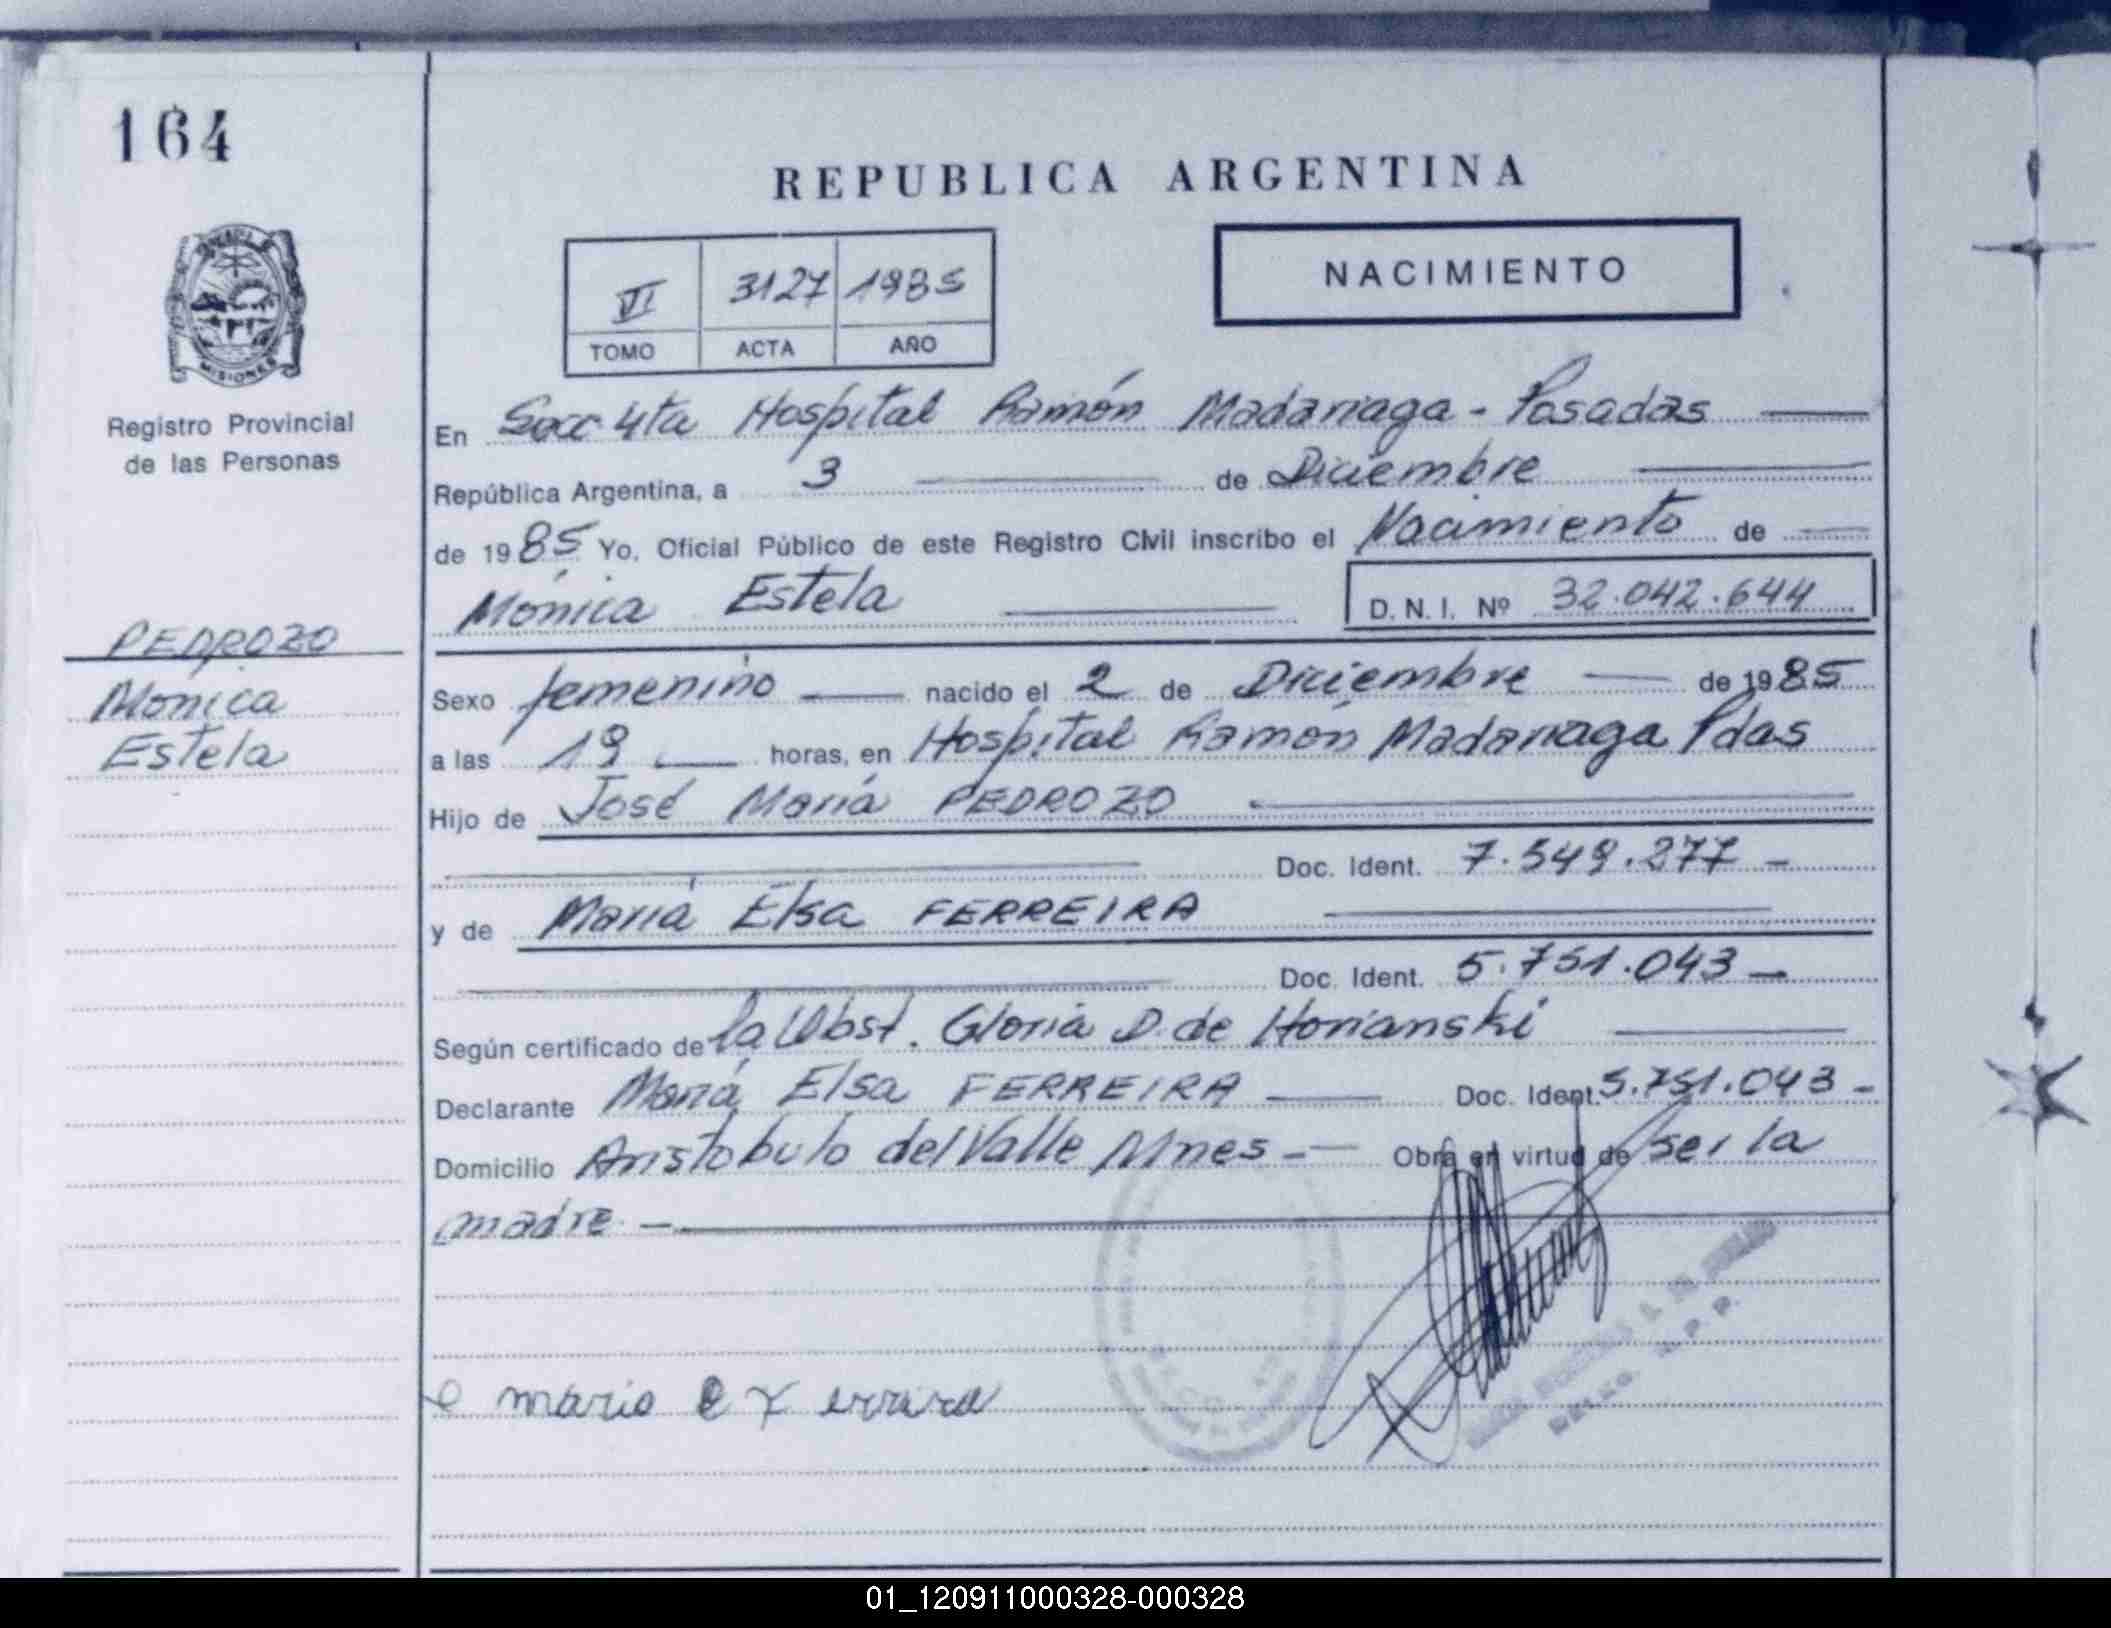 164
REPUBLICA ARGENTINA
VI 3127 1985
TOMO ACTA AÑO
NACIMIENTO
MISIONES
Registro Provincial
de las Personas
PEDROZO
Monica
Estela
En Secc 4ta Hospital Ramón Madariaga - Posadas
República Argentina, a 3 de Diciembre
de 1985 Yo, Oficial Público de este Registro Civil inscribo el Nacimiento de
Mónica Estela D.N.I. Nº 32.042.644
Sexo femenino nacido el 2 de Diciembre de 1985
a las 19 horas, en Hospital Ramón Madariaga Pdas
Hijo de José María PEDROZO
Doc. Ident. 7.549.277
y de María Elsa FERREIRA
Doc. Ident. 5.751.043
Según certificado de la Obst. Gloria D. de Horianski
Declarante María Elsa FERREIRA Doc. Ident. 5.751.043
Domicilio Aristobulo del Valle Mnes Obra en virtud de ser la
madre
01_120911000328-000328